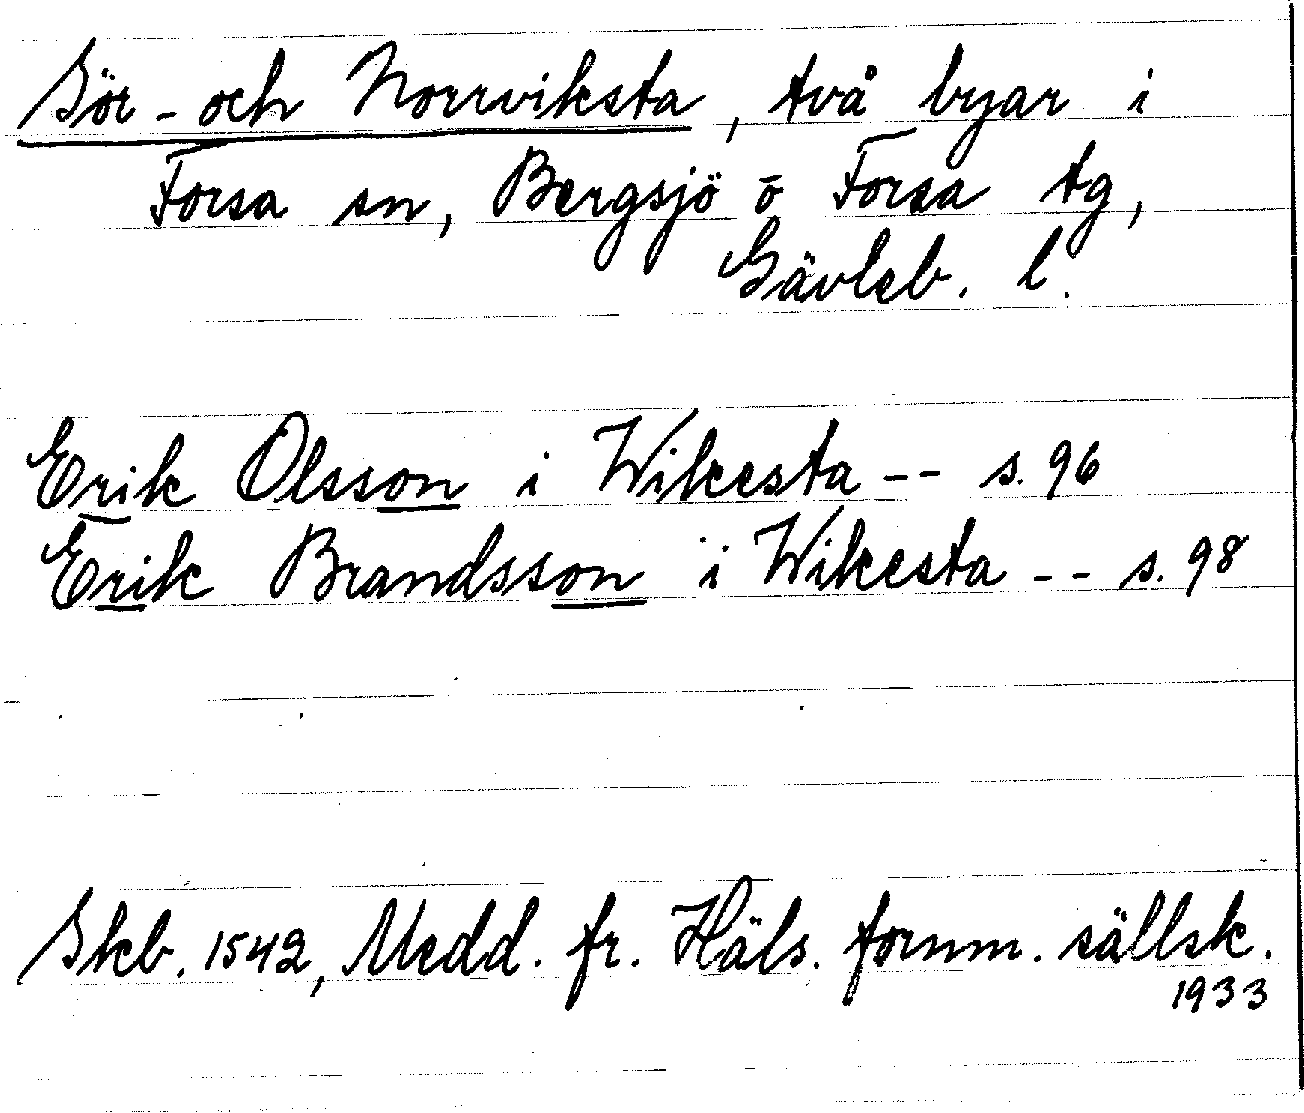 Sör- och Norrviksta, två byar i
Forsa sn, Bergsjö o Forsa tg,
Gävleb. l.
Erik Olsson i Wikesta -- s. 96
Erik Brandsson i Wikesta -- s. 98
Skb. 1542, Medd. fr. Häls. fornm. sällsk.
1933